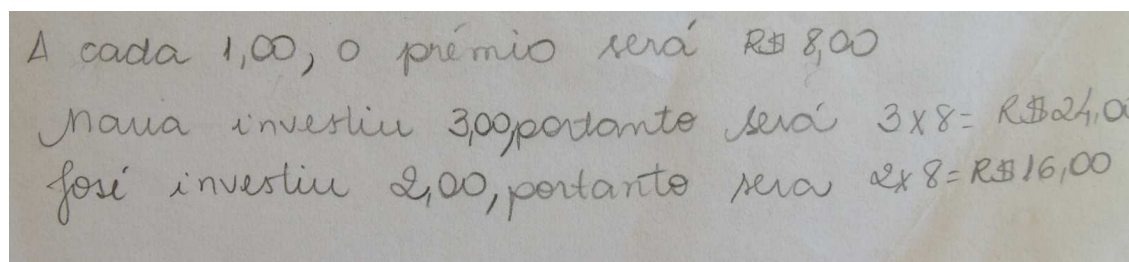 A cada 1,00, o prêmio será R$ 8,00
Maria investiu 3,00, portanto será 3 x 8 = R$ 24,0
José investiu 2,00, portanto sera 2 x 8 = R$ 16,00